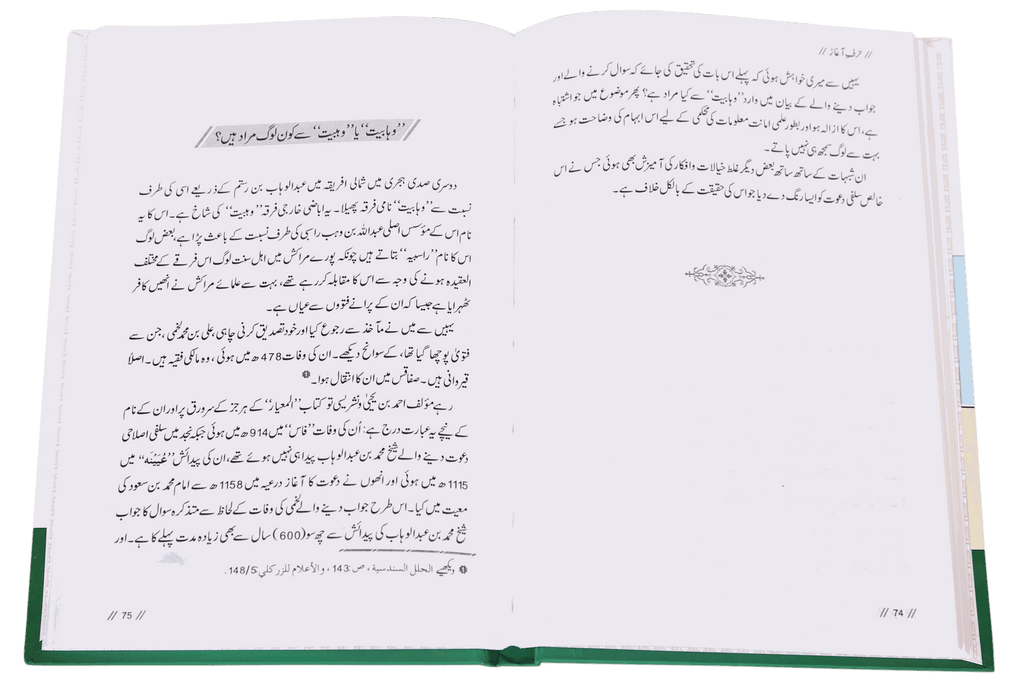 // حرفِ آغاز //
یہیں سے میری خواہش ہوئی کہ پہلے اس بات کی تحقیق کی جائے کہ سوال کرنے والے اور
جواب دینے والے کے بیان میں وارد ’’وہابیت‘‘ سے کیا مراد ہے؟ پھر موضوع میں جو اشتباہ
ہے، اس کا ازالہ ہو اور بطور علمی امانت معلومات کی محکمی کے لیے اس ابہام کی وضاحت ہو جسے
بہت سے لوگ سمجھ ہی نہیں پاتے۔
ان شبہات کے ساتھ ساتھ بعض دیگر غلط خیالات و افکار کی آمیزش بھی ہوئی جس نے اس
خالص سلفی دعوت کو ایسا رنگ دے دیا جو اس کی حقیقت کے بالکل خلاف ہے۔
// 74 //
’’وہابیت‘‘ یا ’’وہبیت‘‘ سے کون لوگ مراد ہیں؟
دوسری صدی ہجری میں شمالی افریقہ میں عبدالوہاب بن رستم کے ذریعے اسی کی طرف
نسبت سے ’’وہابیت‘‘ نامی فرقہ پھیلا۔ یہ اباضی خارجی فرقہ ’’وہبیت‘‘ کی شاخ ہے۔ اس کا یہ
نام اس کے مؤسس اصلی عبداللہ بن وہب راسبی کی طرف نسبت کے باعث پڑا ہے، بعض لوگ
اس کا نام ’’راسبیہ‘‘ بتاتے ہیں چونکہ پورے مراکش میں اہل سنت لوگ اس فرقے کے مختلف
العقیدہ ہونے کی وجہ سے اس کا مقابلہ کر رہے تھے، بہت سے علمائے مراکش نے انھیں کافر
ٹھہرایا ہے جیسا کہ ان کے پرانے فتووں سے عیاں ہے۔
یہیں سے میں نے مآخذ سے رجوع کیا اور خود تصدیق کرنی چاہی، علی بن محمد لخمی، جن سے
فتویٰ پوچھا گیا تھا، کے سوانح دیکھے۔ ان کی وفات 478ھ میں ہوئی، وہ مالکی فقیہ ہیں۔ اصلاً
قیروانی ہیں۔ صفاقس میں ان کا انتقال ہوا۔❶
رہے مؤلف احمد بن یحییٰ ونشریسی تو کتاب ’’المعیار‘‘ کے ہر جز کے سرورق پر اور ان کے نام
کے نیچے یہ عبارت درج ہے: اُن کی وفات ’’فاس‘‘ میں 914ھ میں ہوئی جبکہ نجد میں سلفی اصلاحی
دعوت دینے والے شیخ محمد بن عبدالوہاب پیدا ہی نہیں ہوئے تھے، ان کی پیدائش ’’عُیَیْنَه‘‘ میں
1115ھ میں ہوئی اور انھوں نے دعوت کا آغاز درعیہ میں 1158ھ سے امام محمد بن سعود کی
معیت میں کیا۔ اس طرح جواب دینے والے لخمی کی وفات کے لحاظ سے متذکرہ سوال کا جواب
شیخ محمد بن عبدالوہاب کی پیدائش سے چھ سو (600) سال سے بھی زیادہ مدت پہلے کا ہے۔ اور
❶ دیکھیے الحلل السندسية، ص: 143، والأعلام للزركلي: 148/5.
// 75 //